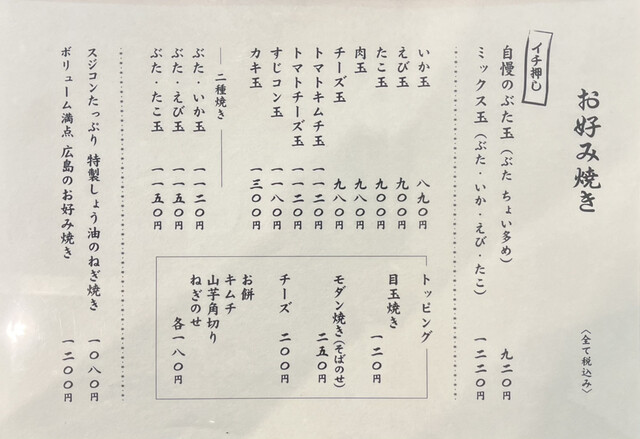 お好み焼き
〈全て税込み〉
イチ押し
自慢のぶた玉(ぶた ちょい多め) 九二〇円
ミックス玉(ぶた・いか・えび・たこ) 一二二〇円
いか玉 八九〇円
えび玉 九〇〇円
たこ玉 九〇〇円
肉玉 九八〇円
チーズ玉 九八〇円
トマトキムチ玉 一一二〇円
トマトチーズ玉 一一二〇円
すじコン玉 一一八〇円
カキ玉 一三〇〇円
二種焼き
ぶた・いか玉 一一二〇円
ぶた・えび玉 一一五〇円
ぶた・たこ玉 一一五〇円
トッピング
目玉焼き 一二〇円
モダン焼き(そばのせ) 二五〇円
チーズ 二〇〇円
お餅
キムチ
山芋角切り
ねぎのせ
各一八〇円
スジコンたっぷり 特製しょう油のねぎ焼き 一〇八〇円
ボリューム満点 広島のお好み焼き 一二〇〇円